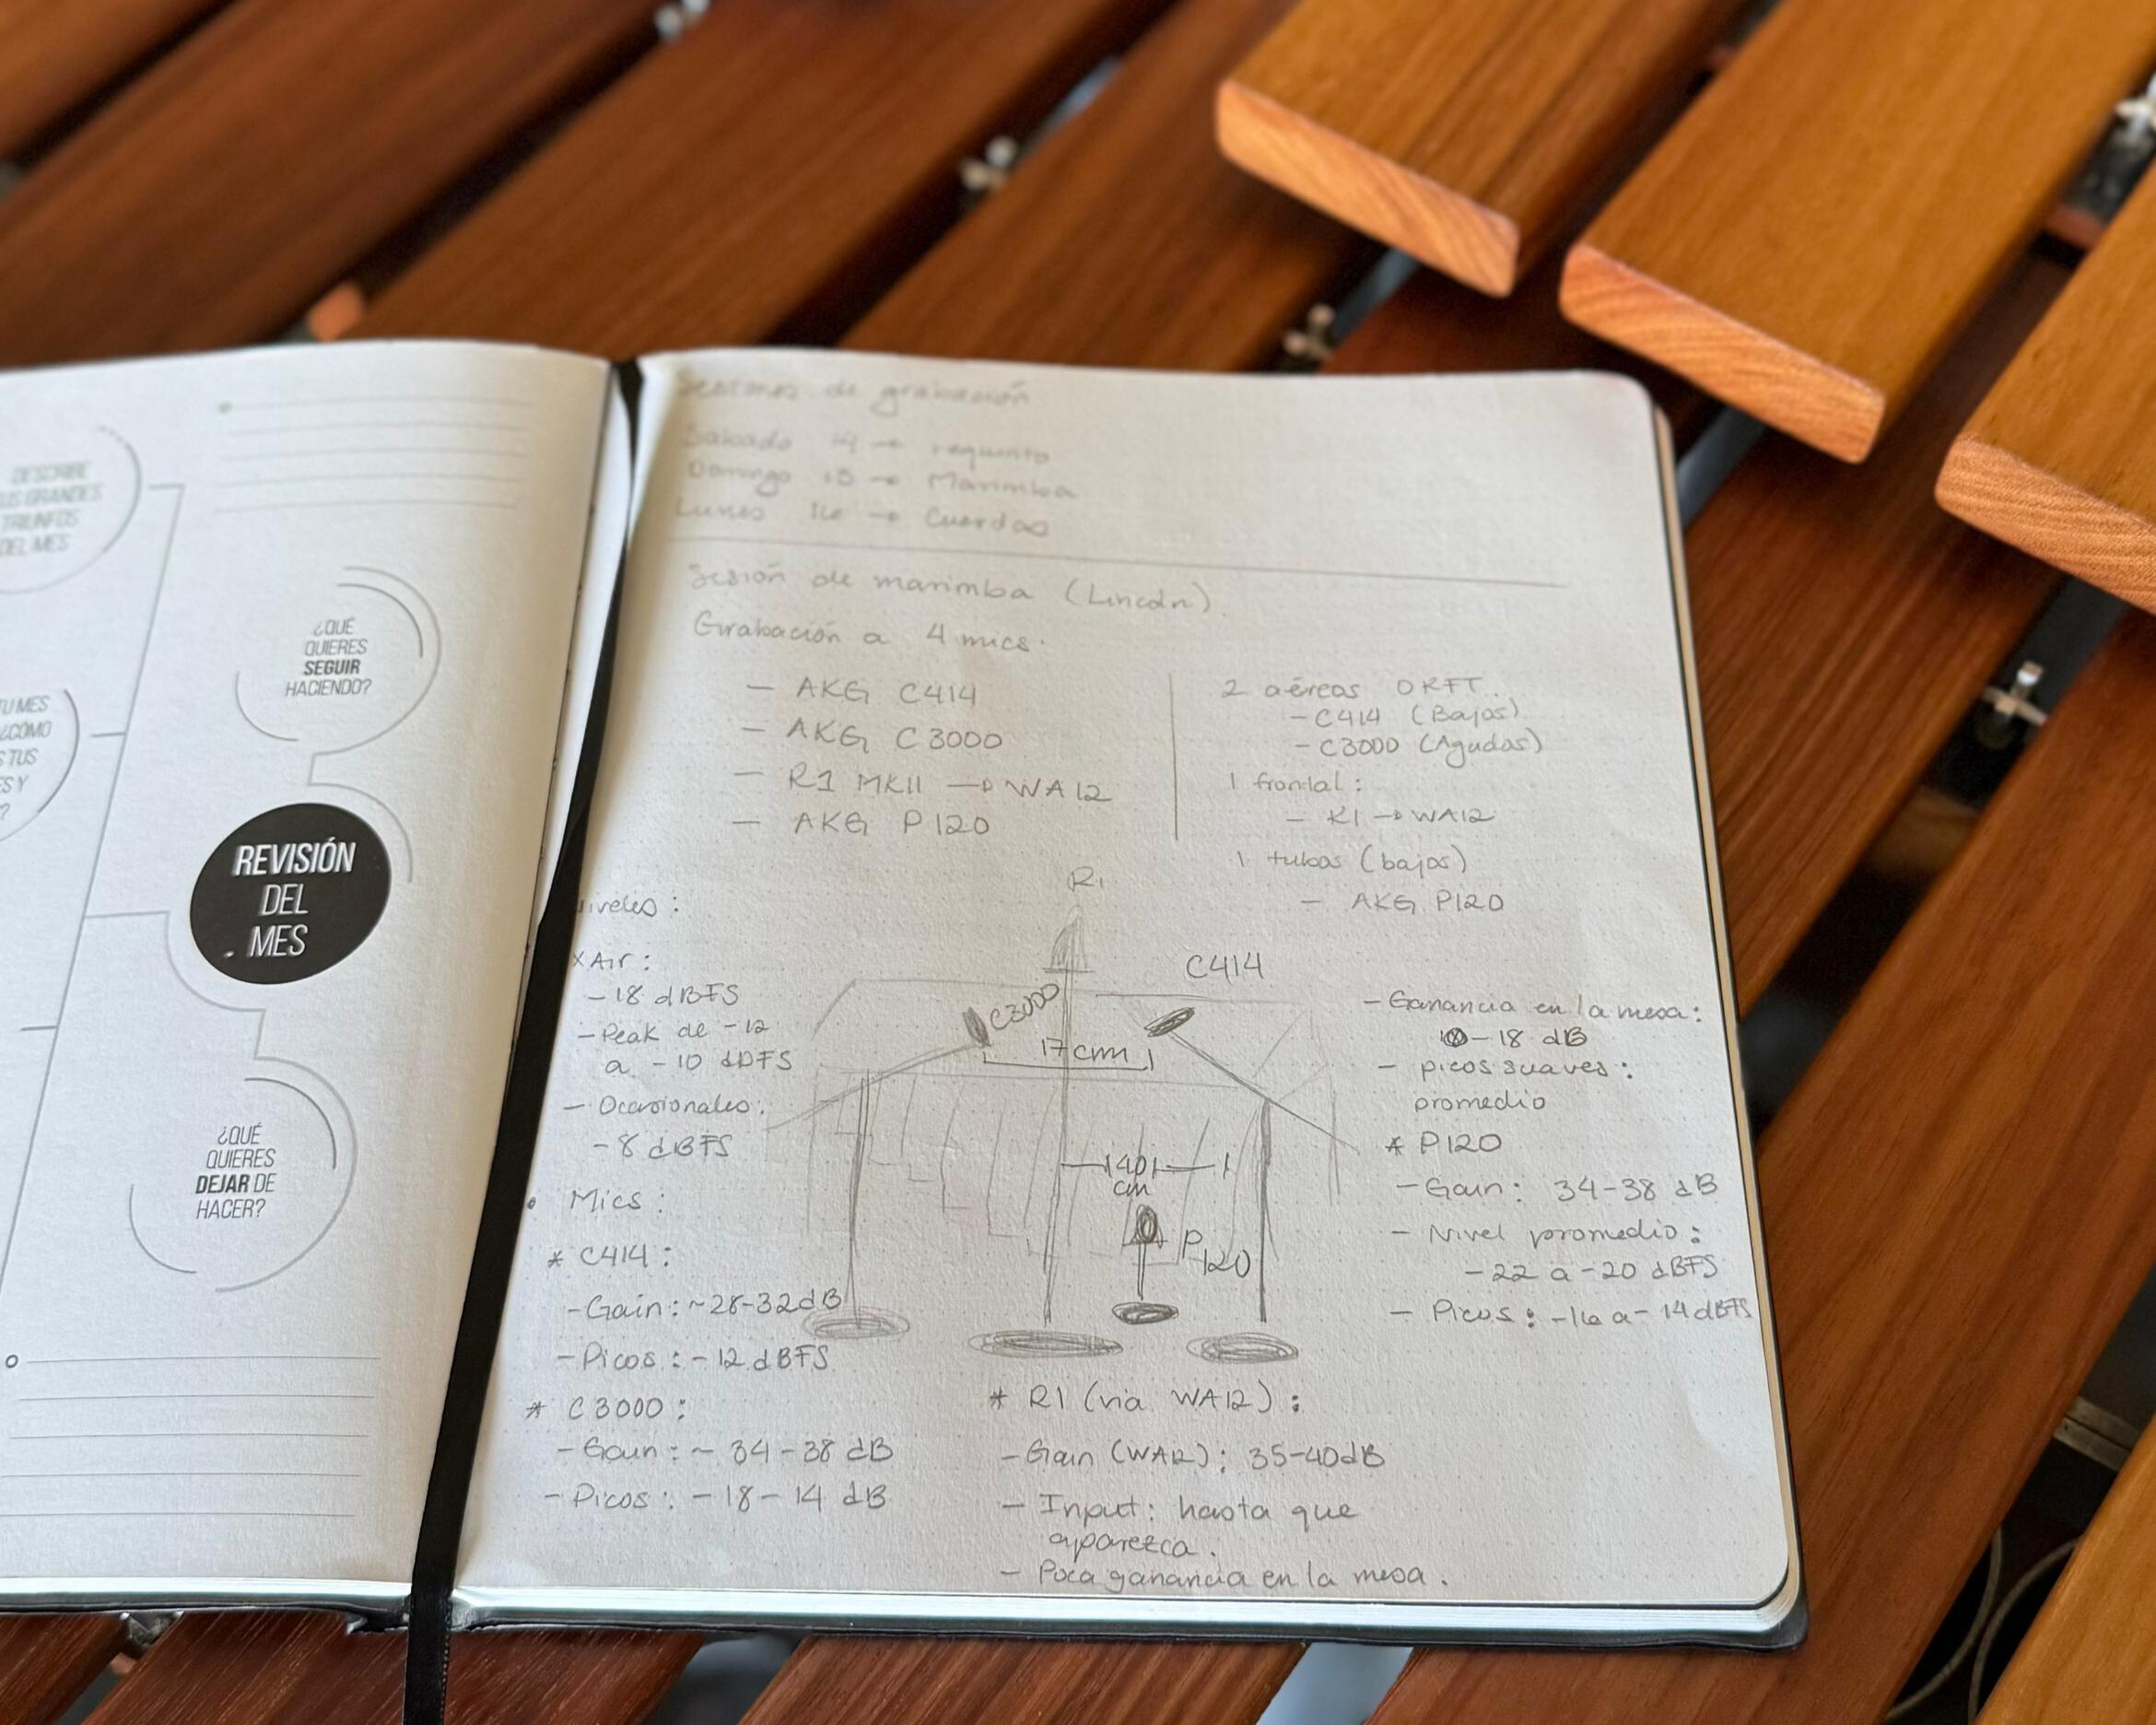 DESCRIBE
US GRANDES
TRIUNFOS
DEL MES
TU MES
¿CÓMO
S TUS
ES Y
?
¿QUÉ
QUIERES
SEGUIR
HACIENDO?
REVISIÓN
DEL
MES
¿QUÉ
QUIERES
DEJAR DE
HACER?
Sesiones de grabación
Sábado 14 → requinto
Domingo 15 → Marimba
Lunes 16 → Cuerdas
Sesión de marimba (Lincoln).
Grabación a 4 mics.
- AKG C414
- AKG C3000
- R1 MKII → WA12
- AKG P120
2 aéreos ORFT.
- C414 (Bajos)
- C3000 (Agudos)
1 frontal:
- R1 → WA12
1 tubos (bajos)
- AKG P120
Niveles:
XAir:
-18 dBFS
- Peak de -12
a -10 dBFS
- Ocasionales:
-8 dBFS
• Mics:
* C414:
- Gain: ~28-32dB
- Picos: -12 dBFS
* C3000:
- Gain: ~ 34-38 dB
- Picos: -18-14 dB
R1
C3000
C414
17cm
40
cm
P
120
* R1 (via WA12):
- Gain (WA12): 35-40dB
- Input: hasta que
aparezca.
- Poca ganancia en la mesa.
- Ganancia en la mesa:
-18 dB
- picos suaves:
promedio
* P120
- Gain: 34-38 dB
- Nivel promedio:
-22 a -20 dBFS
- Picos: -16 a -14dBFS